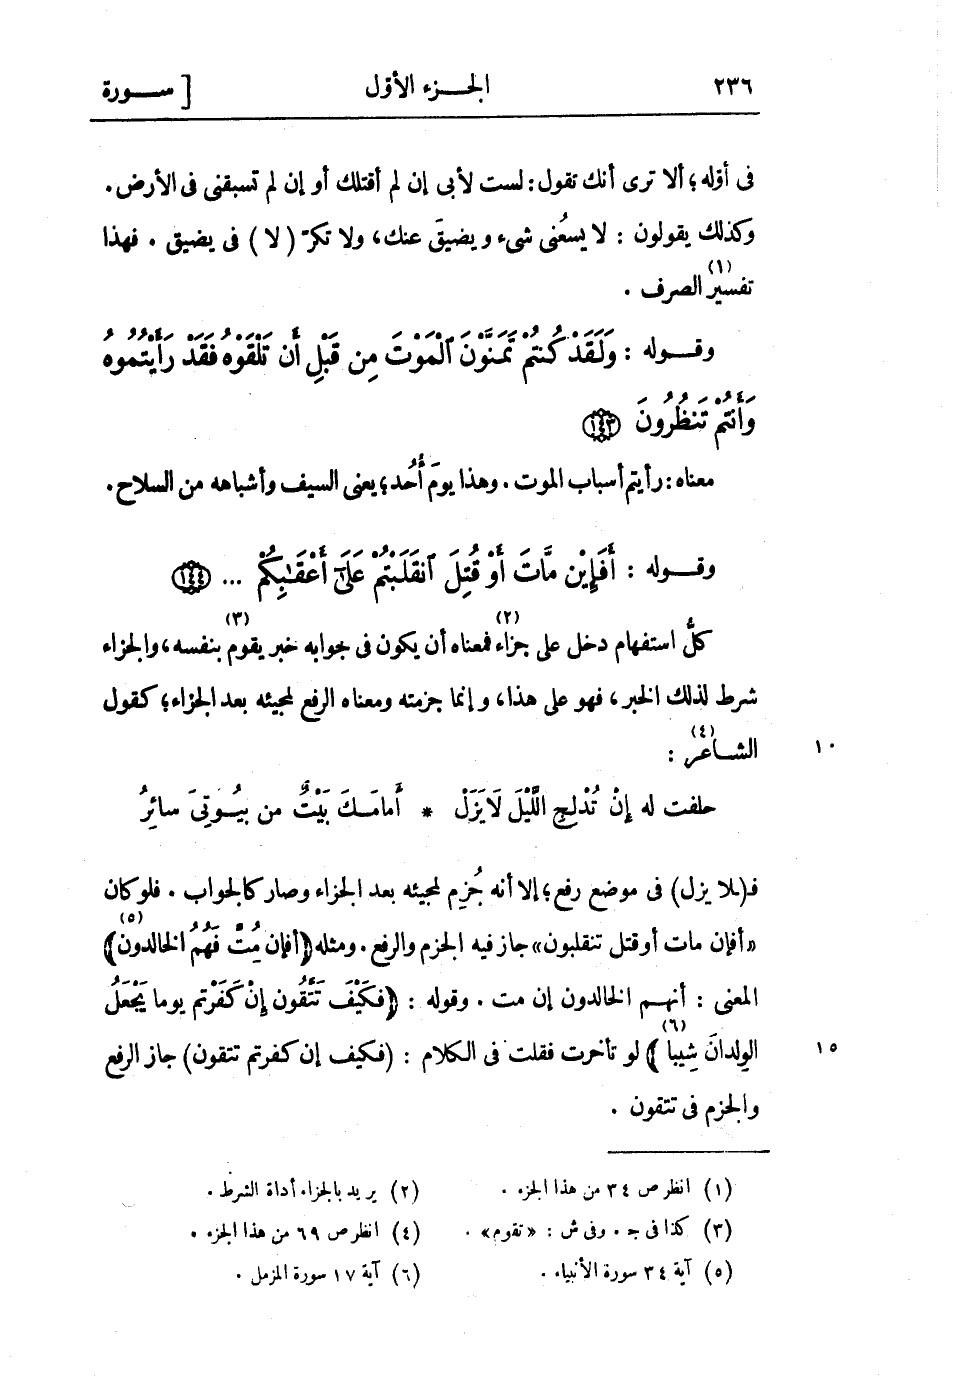 ٢٣٦ الجـــزء الأوّل [ ســـورة
فى أوّله؛ ألا ترى أنك تقول: لست لأبى إن لم أقتلك أو إن لم تسبقنى فى الأرض.
وكذلك يقولون : لا يسعُنى شىء ويضيقَ عنك، ولا تكرّ (لا) فى يضيق . فهذا
تفسير الصرف (١) .
وقـــوله : وَلَقَدْ كُنتُمْ تَمَنَّوْنَ ٱلْمَوْتَ مِن قَبْلِ أَن تَلْقَوْهُ فَقَدْ رَأَيْتُمُوهُ
وَأَنتُمْ تَنظُرُونَ ﴿١٤٣﴾
معناه: رأيتم أسباب الموت. وهذا يومَ أُحد؛ يعنى السيف وأشباهه من السلاح.
وقـــوله : أَفَإِيْن مَّاتَ أَوْ قُتِلَ ٱنقَلَبْتُمْ عَلَىٰٓ أَعْقَٰبِكُمْ ... ﴿١٤٤﴾
كلُّ استفهام دخل على جزاء (٢) فمعناه أن يكون فى جوابه خبر يقوم (٣) بنفسه، والجزاء
شرط لذلك الخبر، فهو على هذا، وإنما جزمته ومعناه الرفع لمجيئه بعد الجزاء؛ كقول
الشـاعر (٤) : ١٠
حلفت له إِنْ تُدْلِجِ اللَّيْلَ لَا يَزَلْ * أَمامَـكَ بَيْتٌ من بيُـوتِىَ سائِرُ
فـ(ـلا يزل) فى موضع رفع؛ إلا أنه جُزِم لمجيئه بعد الجزاء وصار كالجواب . فلو كان
«أفإن مات أو قتل تنقلبون» جاز فيه الجزم والرفع. ومثله ﴿أفإن مُتَّ فَهُمُ الخالدون﴾ (٥)
المعنى : أنهـم الخالدون إن مت . وقوله : ﴿فَكَيْفَ تَتَّقُون إِنْ كَفَرْتم يوما يَجْعَلُ
الوِلدانَ شِيبا﴾ (٦) لو تأخرت فقلت فى الكلام : (فكيف إن كفرتم تتقون) جاز الرفع ١٥
والجزم فى تتقون .
(١) انظر ص ٣٤ من هذا الجزء . (٢) يريد بالجزاء أداة الشرط .
(٣) كذا فى جـ . وفى ش : «تقوم» . (٤) انظر ص ٦٩ من هذا الجزء .
(٥) آية ٣٤ سورة الأنبياء . (٦) آية ١٧ سورة المزمل .